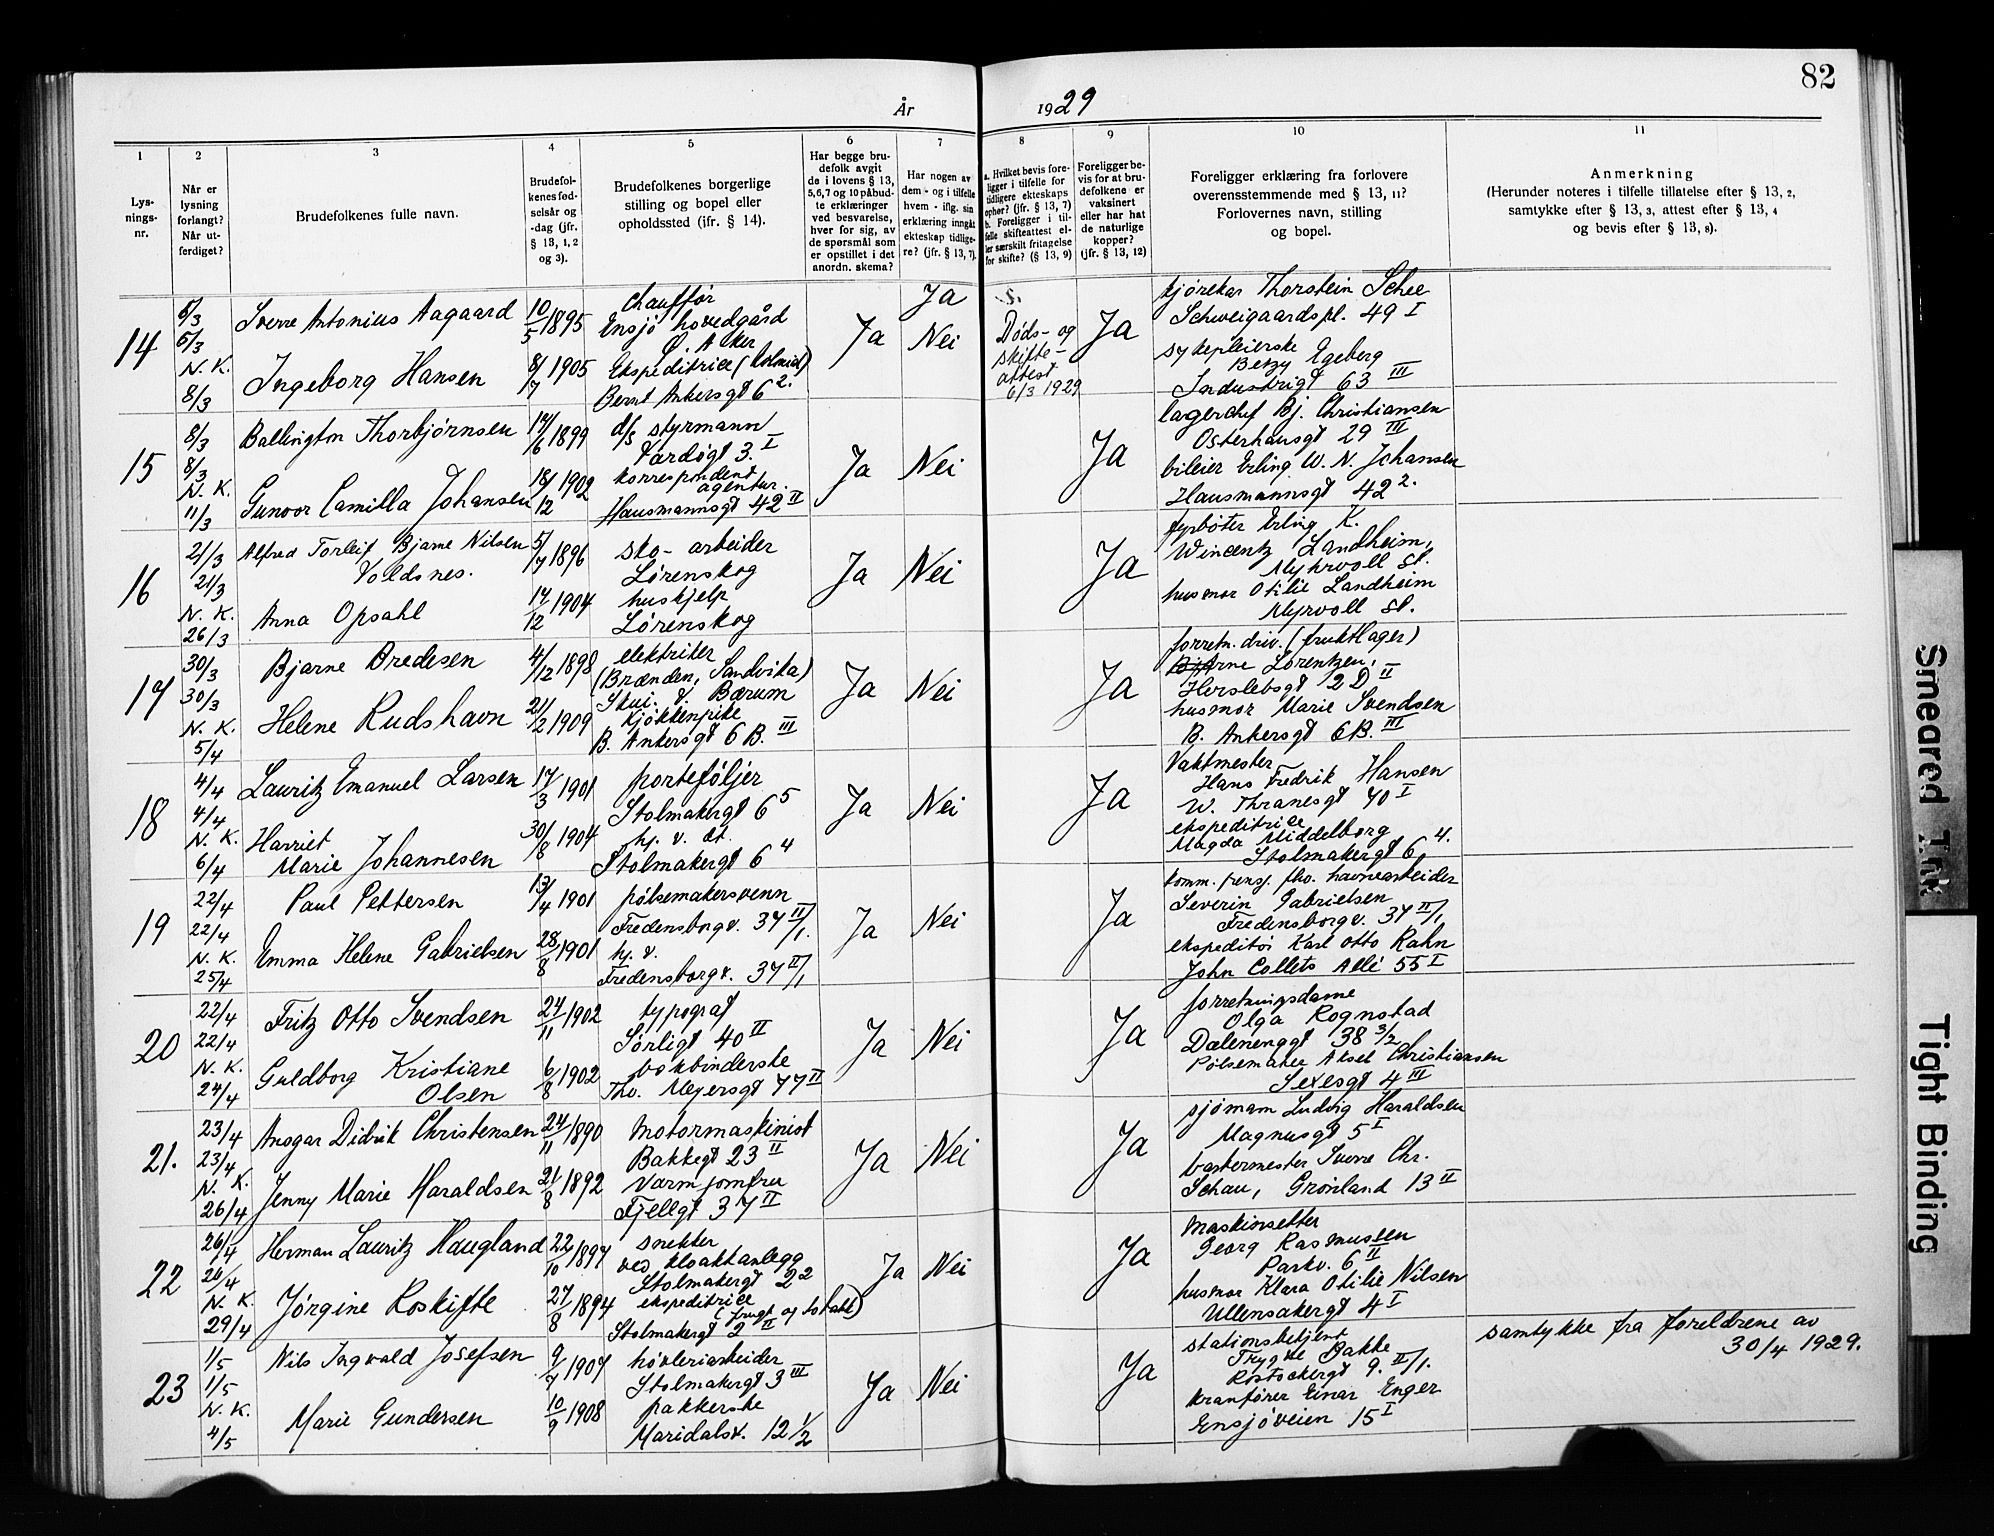 82
År 1929
1
Lys-
nings-
nr.
2
Når er
lysning
forlangt?
Når ut-
ferdiget?
3
Brudefolkenes fulle navn.
4
Brudefol-
kenes fød-
selsår og
-dag (jfr.
§ 13, 1, 2
og 3).
5
Brudefolkenes borgerlige
stilling og bopel eller
opholdssted (jfr. § 14).
6
Har begge bru-
defolk avgit
de i lovens § 13,
5, 6, 7 og 10 påbud-
te erklæringer
ved besvarelse,
hver for sig, av
de spørsmål som
er opstillet i det
anordn. skema?
7
Har nogen av
dem - og i tilfelle
hvem - iflg. sin
erklæring inngåt
ekteskap tidlige-
re? (jfr. § 13, 7).
8
a. Hvilket bevis fore-
ligger i tilfelle for
tidligere ekteskaps
ophør? (jfr. § 13, 7)
b. Foreligger i til-
felle skifteattest el-
ler særskilt fritagelse
for skifte? (§ 13, 9)
9
Foreligger be-
vis for at bru-
defolkene er
vaksinert
eller har hat
de naturlige
kopper?
(jfr. § 13, 12)
10
Foreligger erklæring fra forlovere
overensstemmende med § 13, 11?
Forlovernes navn, stilling
og bopel.
11
Anmerkning
(Herunder noteres i tilfelle tillatelse efter § 13, 2,
samtykke efter § 13, 3, attest efter § 13, 4
og bevis efter § 13, 8).
14
6/3
6/3
N. K.
8/3
Sverre Antonius Aagaard
Ingeborg Hansen
10/5 1895
8/7 1905
chauffør
Ensjø hovedgård
Ø. Aker
Ekspeditrice
Bernt Ankersgt 6 2.
Ja
Ja
Nei
Døds- og
skifte-
attest
6/3 1929
Ja
kjørekar Thorstein Schee
Schweigaardspl. 49 I
sykepleierske
Betzy Egeberg
Industrigt 63 III
15
8/3
8/3
N. K.
11/3
Ballington Thorbjørnsen
Gunvor Camilla Johansen
17/6 1899
18/12 1902
d/s styrmann
Vardøgt 3. I
korrespondent
agentur.
Hausmannsgt 42 II
Ja
Nei
Ja
lagerchef Bj. Christiansen
Osterhausgt 29 III
bileier Erling W. N. Johansen
Hausmannsgt 42 2.
16
21/3
21/3
N. K.
26/3
Alfred Torleif Bjarne Nilsen
Voldsnes.
Anna Opsahl
5/7 1896
17/12 1904
sko-arbeider
Lørenskog
huskjelp
Lørenskog
Ja
Nei
Ja
fyrbøter Erling K.
Wincentz Landheim,
Myhrvoll st.
husmor Otilie Landheim
Myrvoll st.
17
30/3
30/3
N. K.
5/4
Bjarne Bredesen
Helene Rudshavn
4/12 1898
21/2 1909
elektriker
(Brænden, Sandvika)
Skui. V. Bærum
kjøkkenpike
B. Ankersgt 6 B. III
Ja
Nei
Ja
forretn. driv. (fruktlager)
Arne Lorentzen,
Herslebsgt 2 D II
husmor Marie Svendsen
B. Ankersgt 6 B. III
18
4/4
4/4
N. K.
6/4
Lauritz Emanuel Larsen
Harriet
Marie Johannesen
17/3 1901
30/8 1904
portefôljer
Stolmakergt 6 5
hj. v. dt.
Stolmakergt 6 4
Ja
Nei
Ja
Vaktmester
Hans Fredrik Hansen
W. Thranesgt 70 I
ekspeditrice
Magda Middelborg
Stolmakergt 6 4.
19
22/4
22/4
N. K.
25/4
Paul Pettersen
Emma Helene Gabrielsen
13/4 1901
28/8 1901
pølsemakersvenn
Fredensborgv. 37 II/1.
hj. v.
Fredensborgv. 37 II/1
Ja
Nei
Ja
komm. pensj. fhv. havnearbeider
Severin Gabrielsen
Fredensborgv. 37 II/1
ekspeditør Karl Otto Rahn
John Collets Allé 55 I
20
22/4
22/4
N. K.
24/4
Fritz Otto Svendsen
Guldborg Kristiane
Olsen
24/11 1902
6/8 1902
typograf
Sørligt 40 II
bokbinderske
Thv. Meyersgt 77 II
Ja
Nei
Ja
forretningsdame
Olga Rognstad
Dælenenggt 38 3/2
Pølsemaker Aksel Christiansen
Sexesgt 4 III
21.
23/4
23/4
N. K.
26/4
Ansgar Didrik Christensen
Jenny Marie Haraldsen
24/11 1890
21/8 1892
Motormaskinist
Bakkegt 23 II
Varmjomfru
Fjellgt 37 II
Ja
Nei
Ja
sjømann Ludvig Haraldsen
Magnusgt 5 I
baskermester Sverre Chr.
Schau, Grønland 13 II
22
26/4
26/4
N. K.
29/4
Herman Lauritz Haugland
Jørgine Roskifte
22/10 1897
27/8 1894
snekker
ved kloakkanlegg
Stolmakergt 22
ekspeditrice
(frugt og tobakk)
Stolmakergt 2 II
Ja
Nei
Ja
Maskinsetter
Georg Rasmussen
Parkv. 6 II
husmor Klara Otilie Nilsen
Ullensakergt 4 I
23
1/5
1/5
N. K.
4/5
Nils Ingvald Josefsen
Marie Gundersen
9/7 1907
10/9 1908
høvleriarbeider
Stolmakergt 3 III
pakkerske
Maridalsv. 12 1/2
Ja
Nei
Ja
stationsbetjent
Trygve Bakke
Rostockergt 9. II/1.
kranfører Einar Enger
Ensjøveien 15 I
samtykke fra foreldrene av
30/4 1929.
Smeared Ink
Tight Binding